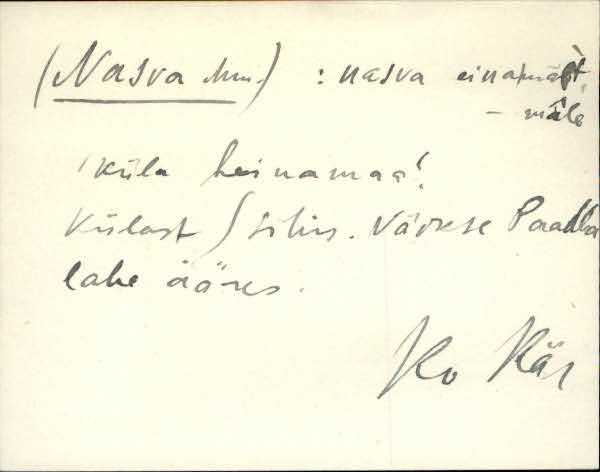 (Nasva hm.) : nasva einamà̭ʒt,
– màle
'küla heinamaa'.
Külast S sihis. Väikese Paadla
lahe ääres.
Ko Kär